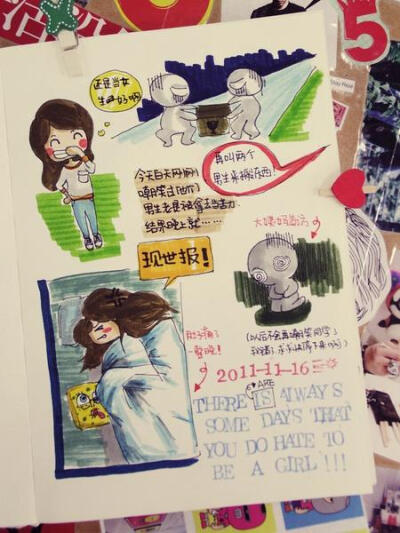 还是当女
生好啊
再叫两个
男生来搬东西!
今天白天刚刚
嘲笑过他们
男生老是被拿去当苦力
结果晚上就……
现世报!
大姨妈当活
肚子痛了
一整晚!
(以后不会再嘲笑同学了
我错了
2011-11-16
ARE
THERE IS ALWAYS
SOME DAYS THAT
YOU DO HATE TO
BE A GIRL!!!
5